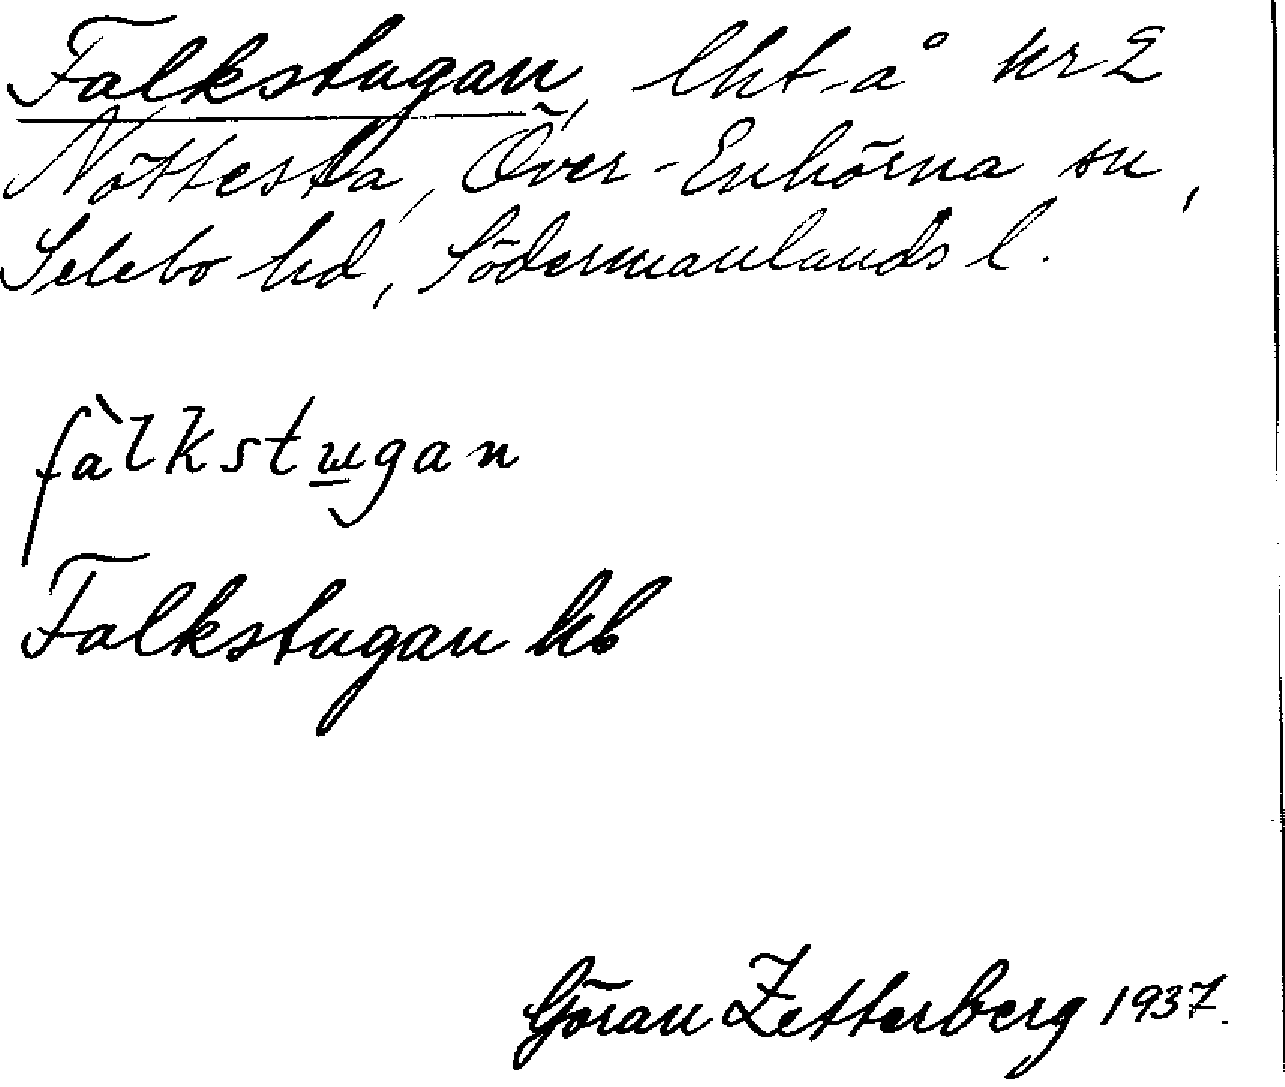 Falkstugan, lht å kr 2
Nöttesta, Över-Enhörna sn,
Selebo hd, Södermanlands l.
fàlkstu̲gan
Falkstugan hb
Göran Zetterberg 1937.